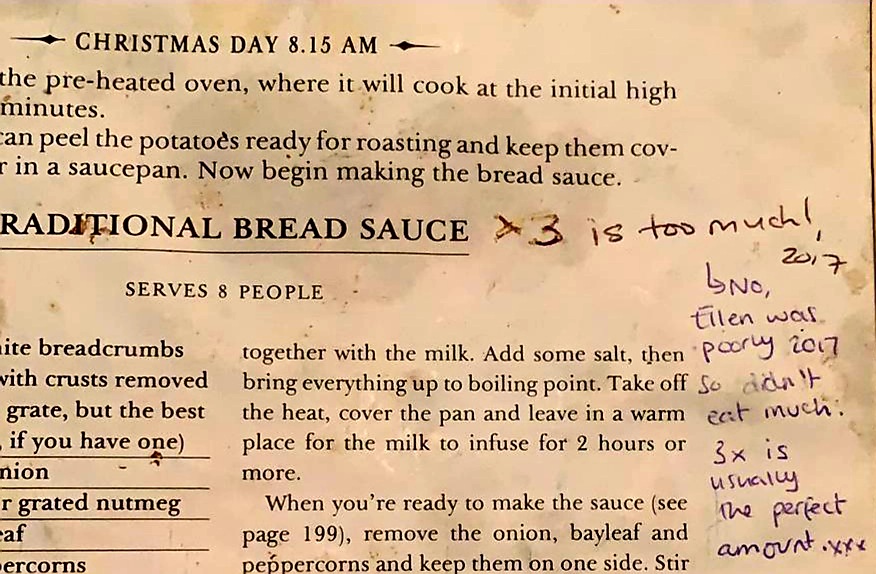 CHRISTMAS DAY 8.15 AM
the pre-heated oven, where it will cook at the initial high
minutes.
can peel the potatoes ready for roasting and keep them cov-
r in a saucepan. Now begin making the bread sauce.
RADITIONAL BREAD SAUCE
x3 is too much!,
2017
SERVES 8 PEOPLE
↳No,
Ellen was
poorly 2017
so didn't
eat much.
3x is
usually
the perfect
amount.xxx
ite breadcrumbs
with crusts removed
grate, but the best
, if you have one)
nion
r grated nutmeg
eaf
percorns
together with the milk. Add some salt, then
bring everything up to boiling point. Take off
the heat, cover the pan and leave in a warm
place for the milk to infuse for 2 hours or
more.
When you're ready to make the sauce (see
page 199), remove the onion, bayleaf and
peppercorns and keep them on one side. Stir